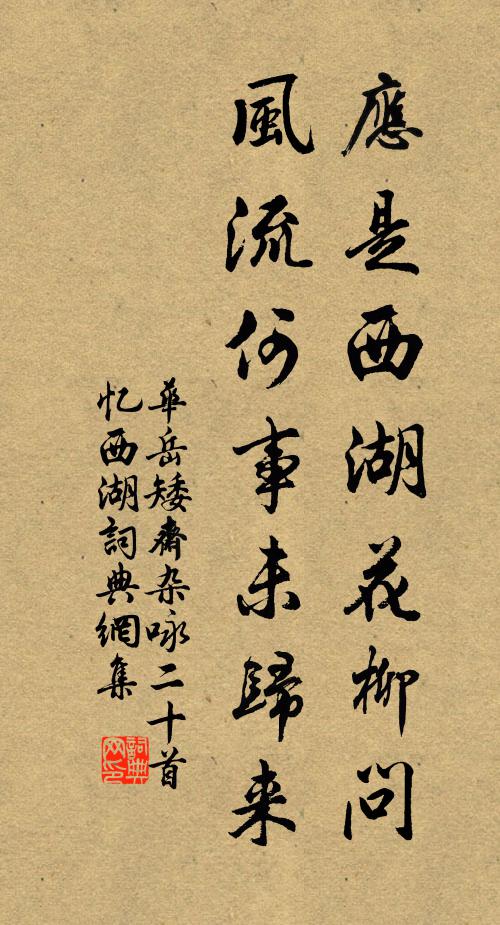 應是西湖花柳問
風流何事未歸来
華岳矮齋杂咏二十首
忆西湖詞典網集
詞典网印